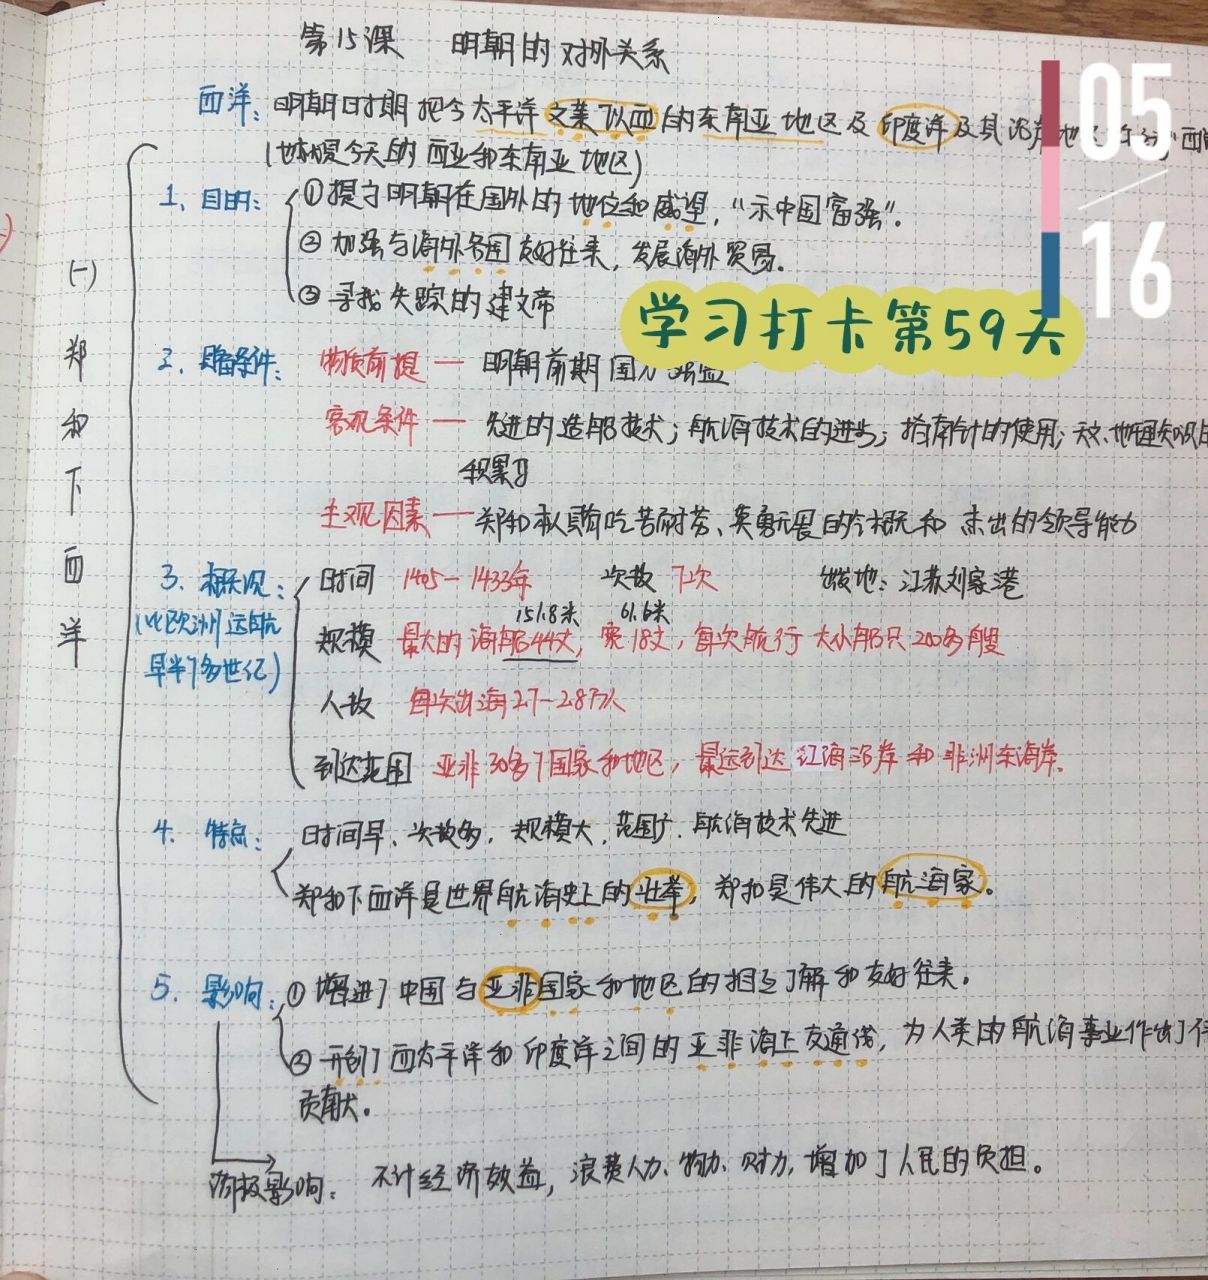 第15课 明朝的对外关系
西洋：明朝时期把今太平洋文莱以西的东南亚地区及印度洋及其沿岸地区
（也就是今天的西亚和东南亚地区）
05
16
（一）郑和下西洋
1、目的：①提高明朝在国外的地位和威望，“示中国富强”.
② 加强与海外各国友好往来，发展海外贸易.
③ 寻找失踪的建文帝
学习打卡第59天
2、具备条件：物质前提 — 明朝前期国力强盛
客观条件 — 先进的造船技术；航海技术的进步；指南针的使用；天文、地理知识的
积累
主观因素 — 郑和本人具有吃苦耐劳、英勇无畏的气概和杰出的领导能力
3、概况：时间 1405—1433年 次数 7次 出发地：江苏刘家港
（比欧洲远航早半个多世纪）
151.8米 61.6米
规模 最大的海船44丈，宽18丈，每次航行大小船只200多艘
人数 每次出海2.7—2.8万人
到达范围 亚非30多个国家和地区，最远到达红海沿岸和非洲东海岸.
4. 特点：时间早、次数多，规模大，范围广，航海技术先进
郑和下西洋是世界航海史上的壮举，郑和是伟大的航海家。
5. 影响：① 增进了中国与亚非国家和地区的相互了解和友好往来。
② 开创了西太平洋和印度洋之间的亚非海上交通线，为人类的航海事业作出了伟
贡献。
消极影响：不计经济效益，浪费人力、物力、财力，增加了人民的负担。